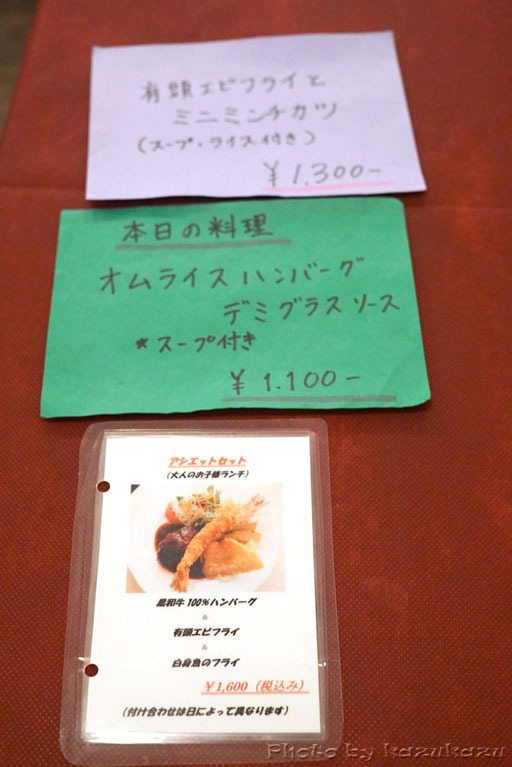 有頭エビフライと
ミニミンチカツ
(スープ・ライス付き)
¥1.300-
本日の料理
オムライスハンバーグ
デミグラスソース
★スープ付き
¥1.100-
アシエットセット
(大人のお子様ランチ)
黒和牛100%ハンバーグ
&
有頭エビフライ
&
白身魚のフライ
¥1,600(税込み)
(付け合わせは日によって異なります)
Photo by kazukazu